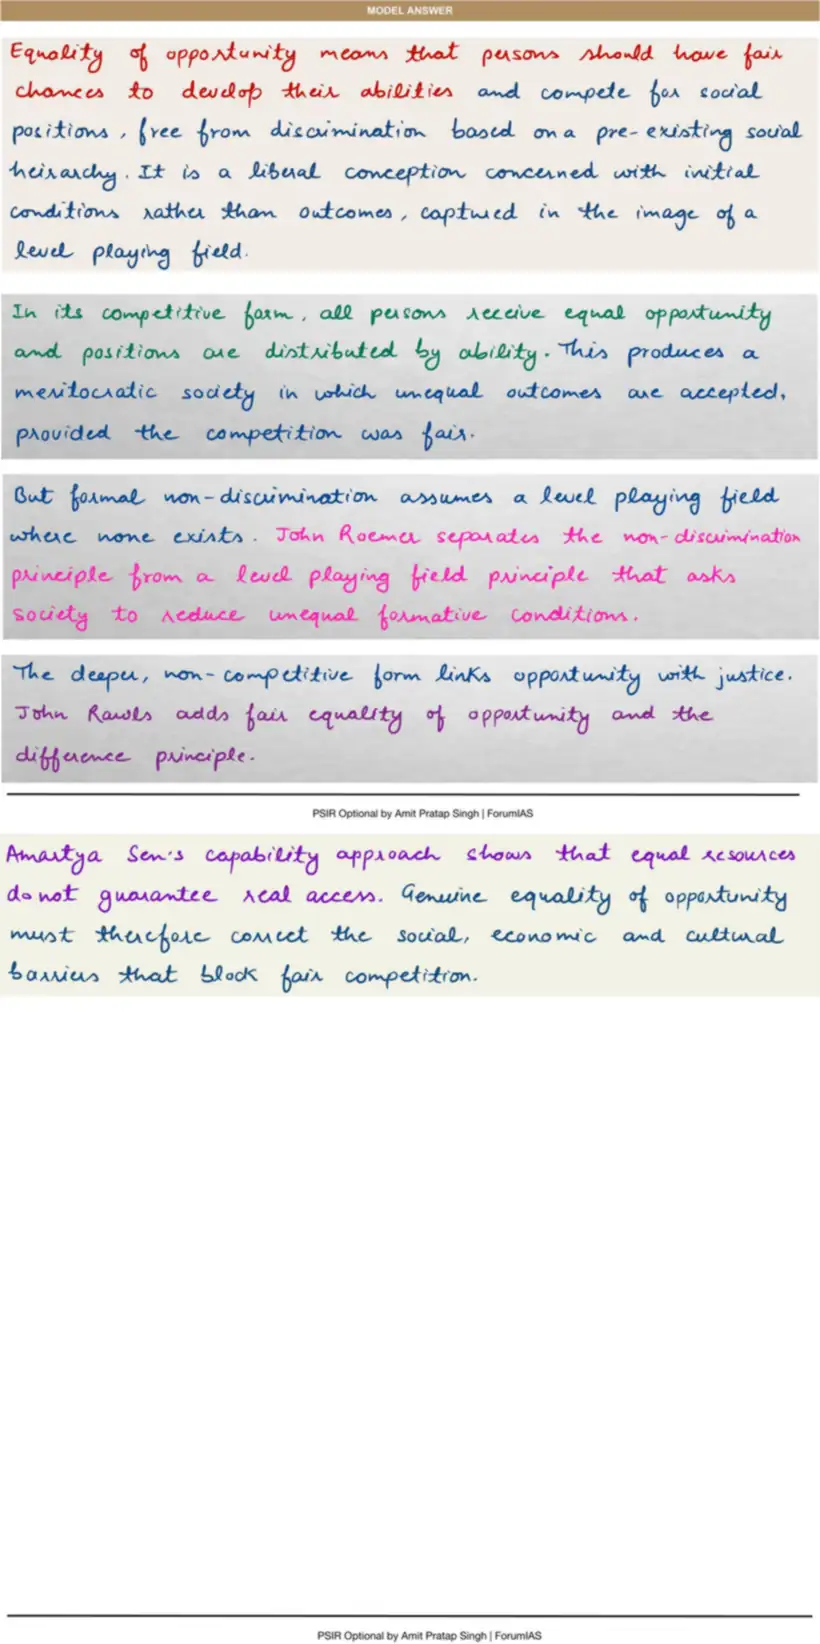 MODEL ANSWER
Equality of opportunity means that persons should have fair
chances to develop their abilities and compete for social
positions, free from discrimination based on a pre-existing social
heirarchy. It is a liberal conception concerned with initial
conditions rather than outcomes, captured in the image of a
level playing field.
In its competitive form, all persons receive equal opportunity
and positions are distributed by ability. This produces a
meritocratic society in which unequal outcomes are accepted,
provided the competition was fair.
But formal non-discrimination assumes a level playing field
where none exists. John Roemer separates the non-discrimination
principle from a level playing field principle that asks
society to reduce unequal formative conditions.
The deeper, non-competitive form links opportunity with justice.
John Rawls adds fair equality of opportunity and the
difference principle.
PSIR Optional by Amit Pratap Singh | ForumIAS
Amartya Sen's capability approach shows that equal resources
do not guarantee real access. Genuine equality of opportunity
must therefore correct the social, economic and cultural
barriers that block fair competition.
PSIR Optional by Amit Pratap Singh | ForumIAS